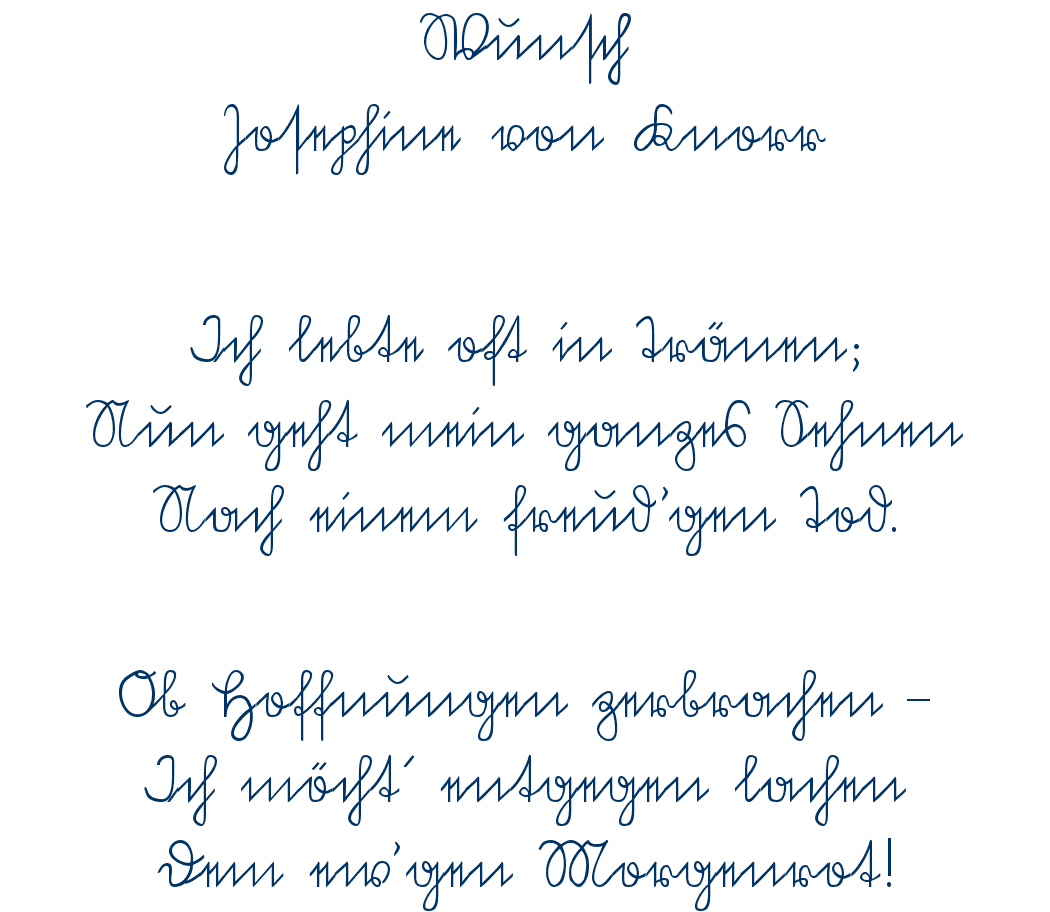 Wunsch
Josephine von Knorr
Ich lebte oft in Tränen;
Nun geht mein ganzes Sehnen
Nach einem freud'gen Tod.
Ob Hoffnungen zerbrachen –
Ich möcht´ entgegen lachen
Dem ew'gen Morgenrot!